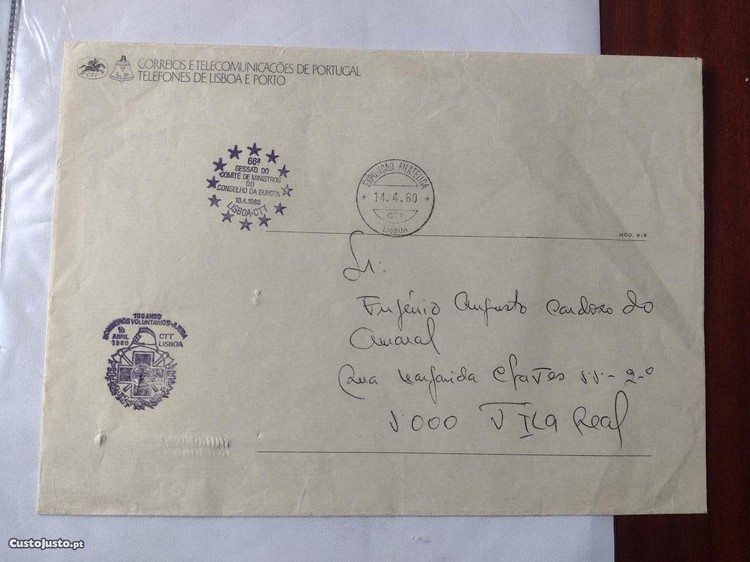 CORREIOS E TELECOMUNICAÇÕES DE PORTUGAL
TELEFONES DE LISBOA E PORTO
CTT
66ª
SESSÃO DO
COMITÉ DE MINISTROS
DO
CONSELHO DA EUROPA
10.4.1980
LISBOA-CTT
EXPOSIÇÃO FILATÉLICA
14.4.80
CTT
LISBOA
MOD. 915
Sr.
Eugénio Augusto Cardoso do
Amaral
Rua Margarida Chaves
2º
5000 VILA Real
100 ANOS
BOMBEIROS VOLUNTÁRIOS-AJUDA
ABRIL
1980
CTT
LISBOA
CustoJusto.pt